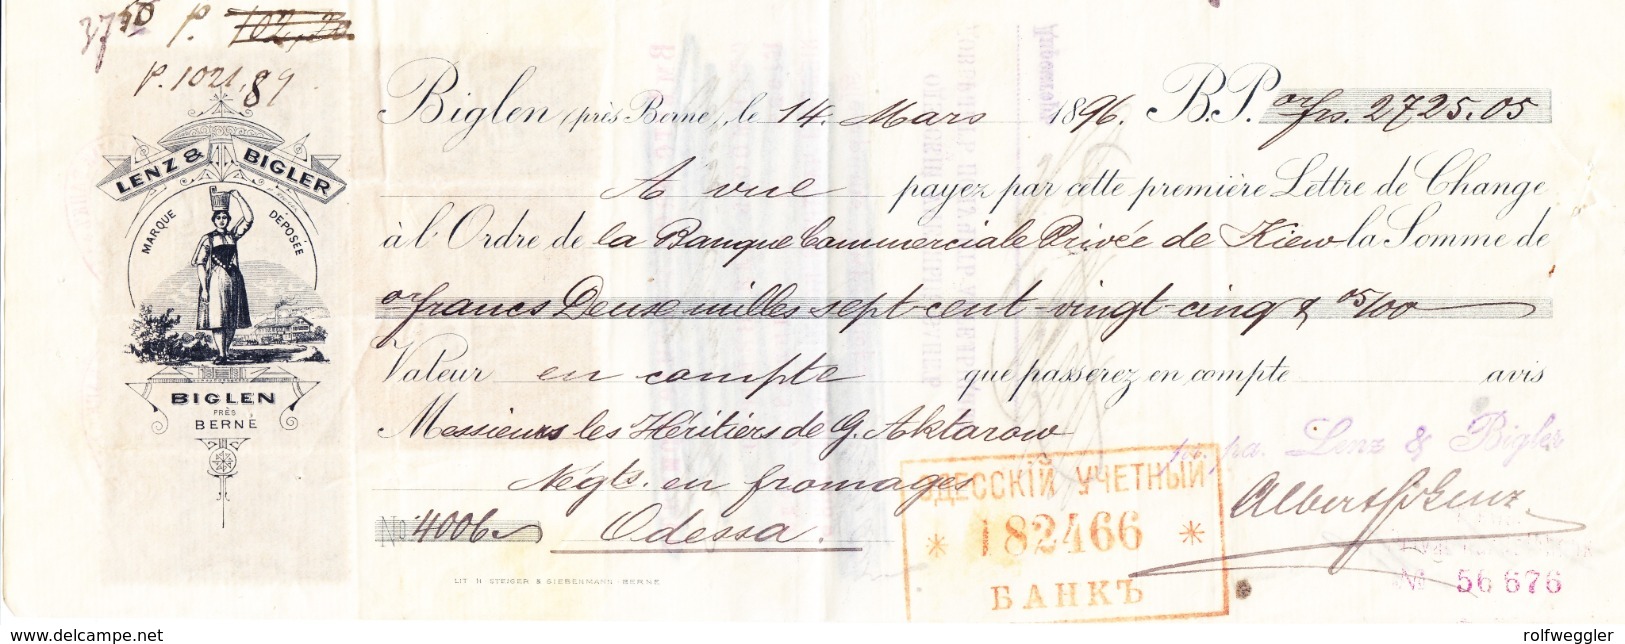 37 50 p. 102,20
p. 1021,89
LENZ & BIGLER
MARQUE DEPOSÉE
BIGLEN
PRÈS
BERNE
Biglen, (près Berne), le 14. Mars 1896. B.P. or frs. 2725.05
A vue payez par cette première Lettre de Change
à l'Ordre de la Banque Commerciale Privée de Kiew la Somme de
or francs Deux milles sept-cent-vingt-cinq & 05/00
Valeur en compte que passerez en compte avis
Messieurs les Héritiers de G. Aktarow
Négts. en fromages
No. 4006 Odessa.
ppa. Lenz & Bigler
ОДЕССКІЙ УЧЕТНЫЙ
* 182466 *
БАНКЪ
№ 56676
LIT. H. STEIGER & SIEBENMANN-BERNE
www.delcampe.net
rolfweggler